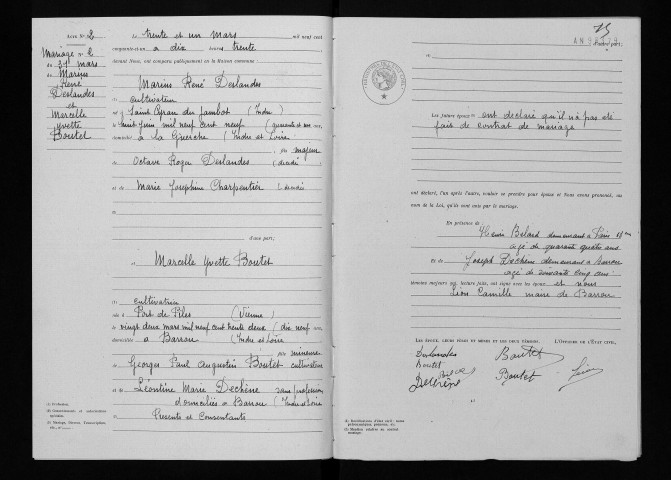 Acte N° 2
Mariage n° 2
du 31 mars
de Marius
René
Deslandes
et
Marcelle
Yvette
Boutet
Le trente et un mars mil neuf cent
cinquante-et-un à dix heures trente
devant Nous, ont comparu publiquement en la Maison commune :
Marius René Deslandes
(1) cultivateur
né à Saint Cyran du Jambot (Indre)
le huit juin mil neuf cent neuf (quarante et un ans,
domicilié à la Guerche (Indre et Loire
fils majeur
de Octave Roger Deslandes (décédé)
et de Marie Joséphine Charpentier (décédée
d'une part;
et Marcelle Yvette Boutet
(1) cultivatrice
née à Port de Piles (Vienne)
le vingt deux mars mil neuf cent trente deux (dix neuf ans,
domiciliée à Barrou (Indre et Loire
fille mineure
de Georges Paul Augustin Boutet cultivateur
et de Léontine Marie Dechêne sans profession
domiciliés à Barrou (Indre et Loire
Présents et Consentants
(1) Profession.
15
d'autre part;
Les futurs époux ont déclaré qu'il n'a pas été
fait de contrat de mariage
ont déclaré, l'un après l'autre, vouloir se prendre pour époux et Nous avons prononcé, au
nom de la Loi, qu'ils sont unis par le mariage.
En présence de : Henri Belard demeurant à
agé de quarante quatre ans
Et de Joseph Dechêne demeurant à Barrou
agé de soixante cinq ans
témoins majeurs qui, lecture faite, ont signé avec les époux et nous
Lion Camille maire de Barrou
Les époux, leurs pères et mères et les deux témoins, L'Officier de l'État civil,
Deslandes Boutet
Boutet
Dechêne Boutet Lion